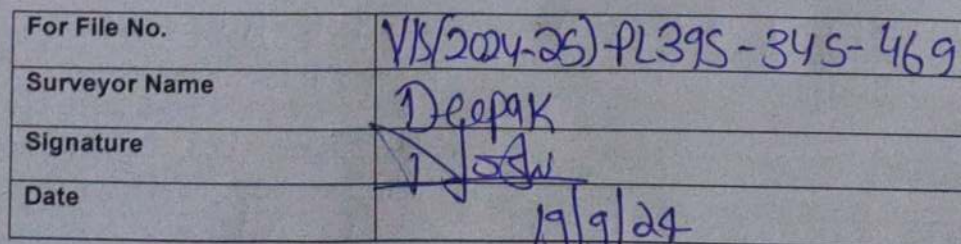 For File No. VIS/(2024-25)-PL395-345-469
Surveyor Name Deepak
Signature Joshi
Date 19/9/24